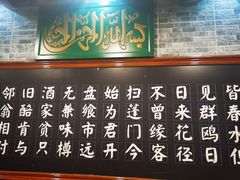 بسم الله الرحمن الرحيم
皆春水但
见群鸥日
日来花径
不曾缘客
扫蓬门今
始为君开
盘飧市远
无兼味樽
酒家贫只
旧醅肯与
邻翁相对